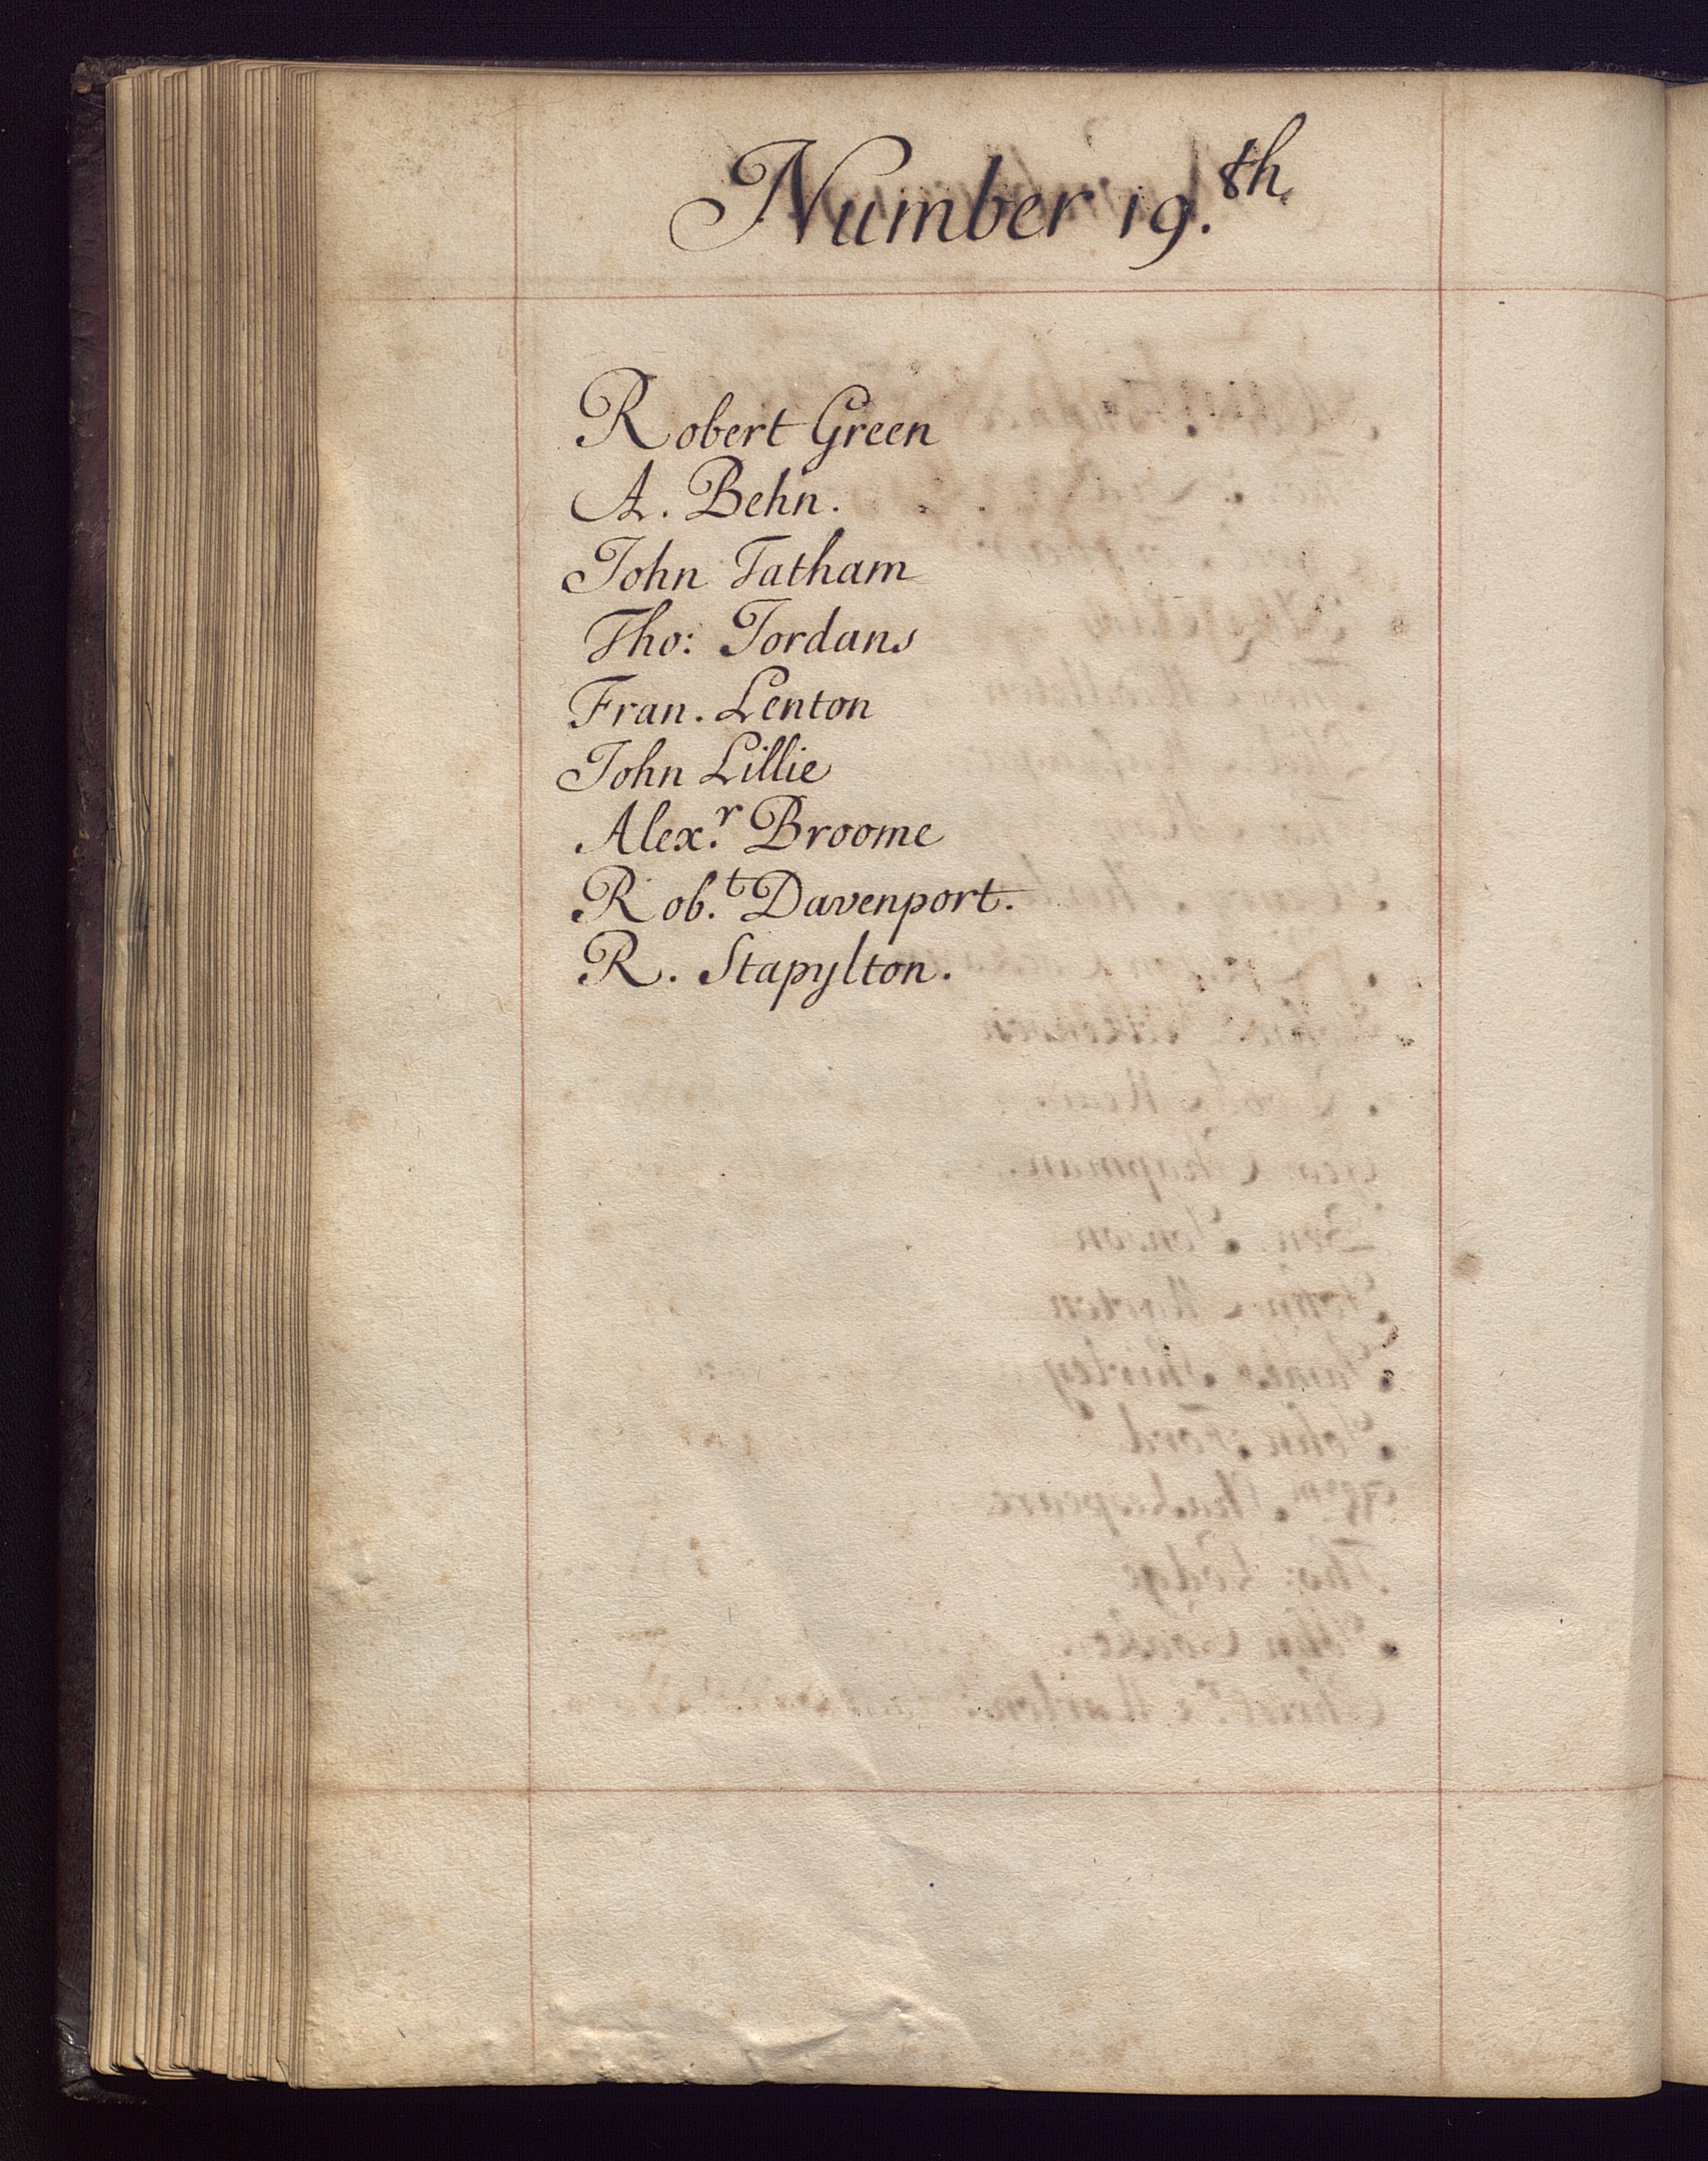 Number 19.th
Robert Green
A. Behn.
John Tatham
Tho: Jordans
Fran. Lenton
John Lillie
Alex.r Broome
Rob.t Davenport.
R. Stapylton.